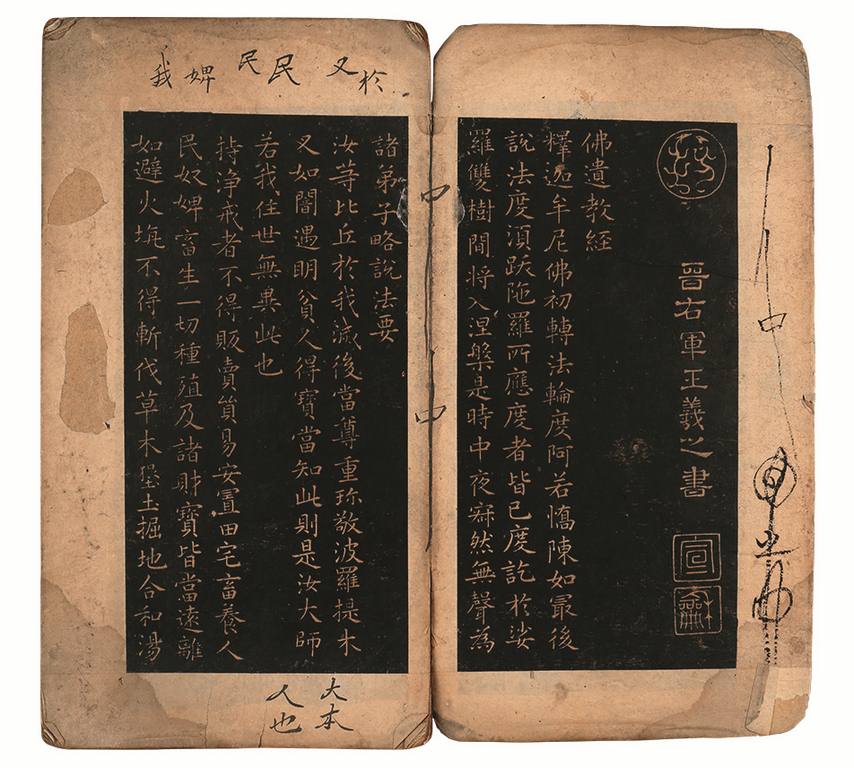 晋右軍王羲之書
宣
龢
佛遺教經
釋迦牟尼佛初轉法輪度阿若憍陳如最後
說法度湏跋陁羅所應度者皆已度訖於娑
羅雙樹間將入涅槃是時中夜寂然無聲為
中
中
於
又
民
民
婢
我
諸弟子略說法要
汝等比丘於我滅後當尊重珎敬波羅提木
又如闇遇明貧人得寶當知此則是汝大師
若我住世無異此也
持淨戒者不得販賣貿易安置田宅畜養人
民奴婢畜生一切種殖及諸財寶皆當遠離
如避火坑不得斬伐草木墾土掘地合和湯
大本
人也